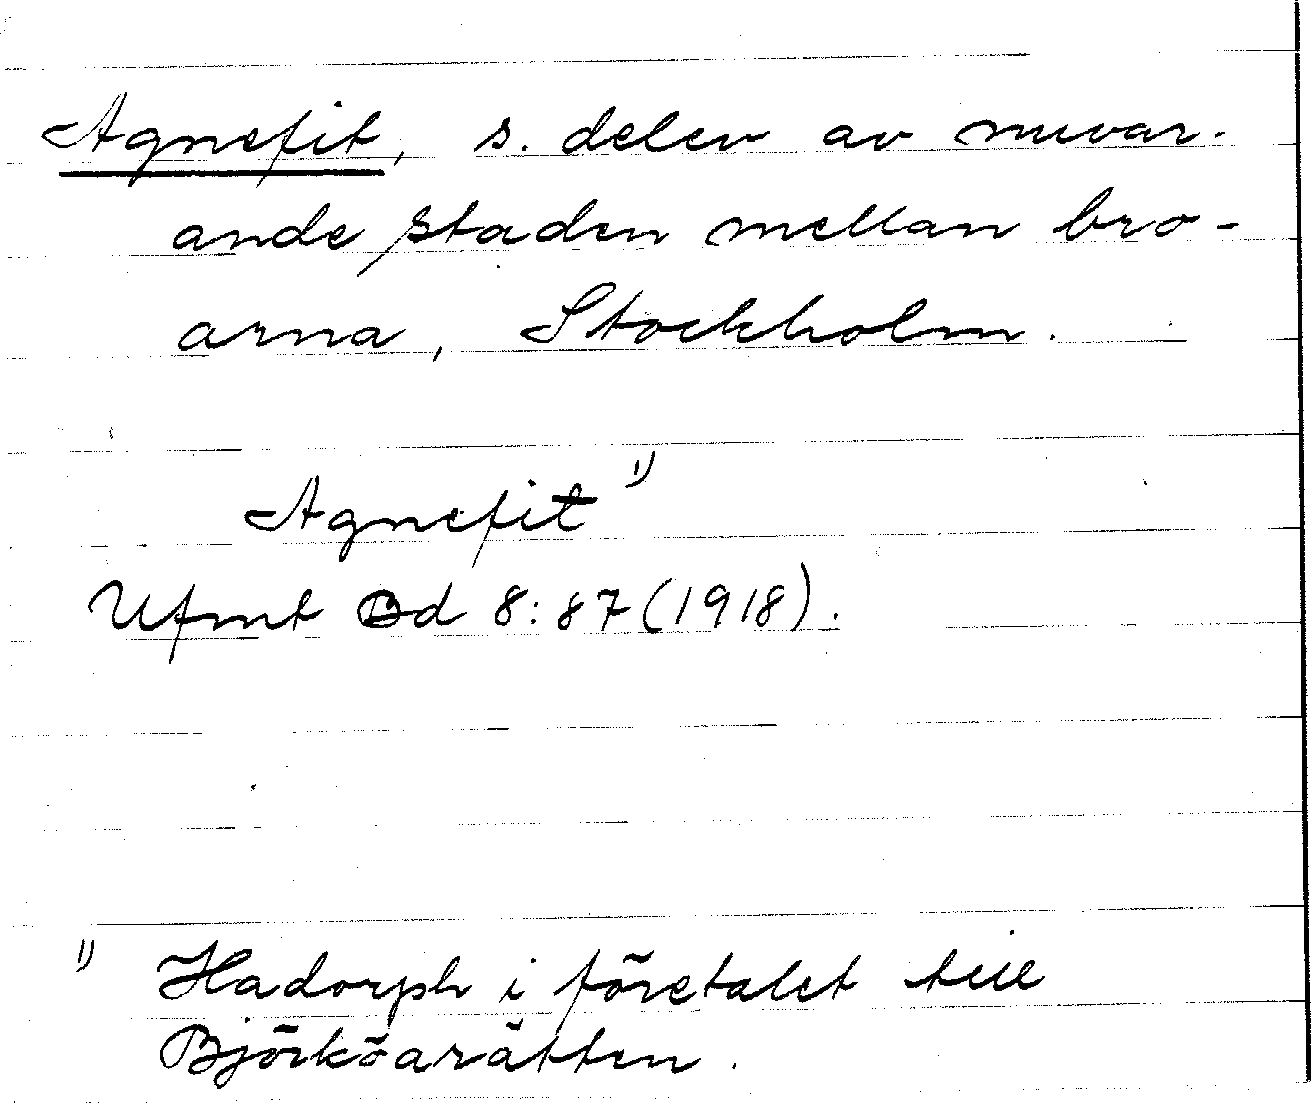 Agnefit, s. delen av nuvar-
ande staden mellan bro-
arna, Stockholm.
Agnefit 1)
Ufmt Bd 8:87 (1918).
1) Hadorph i företalet till
Björköarätten.